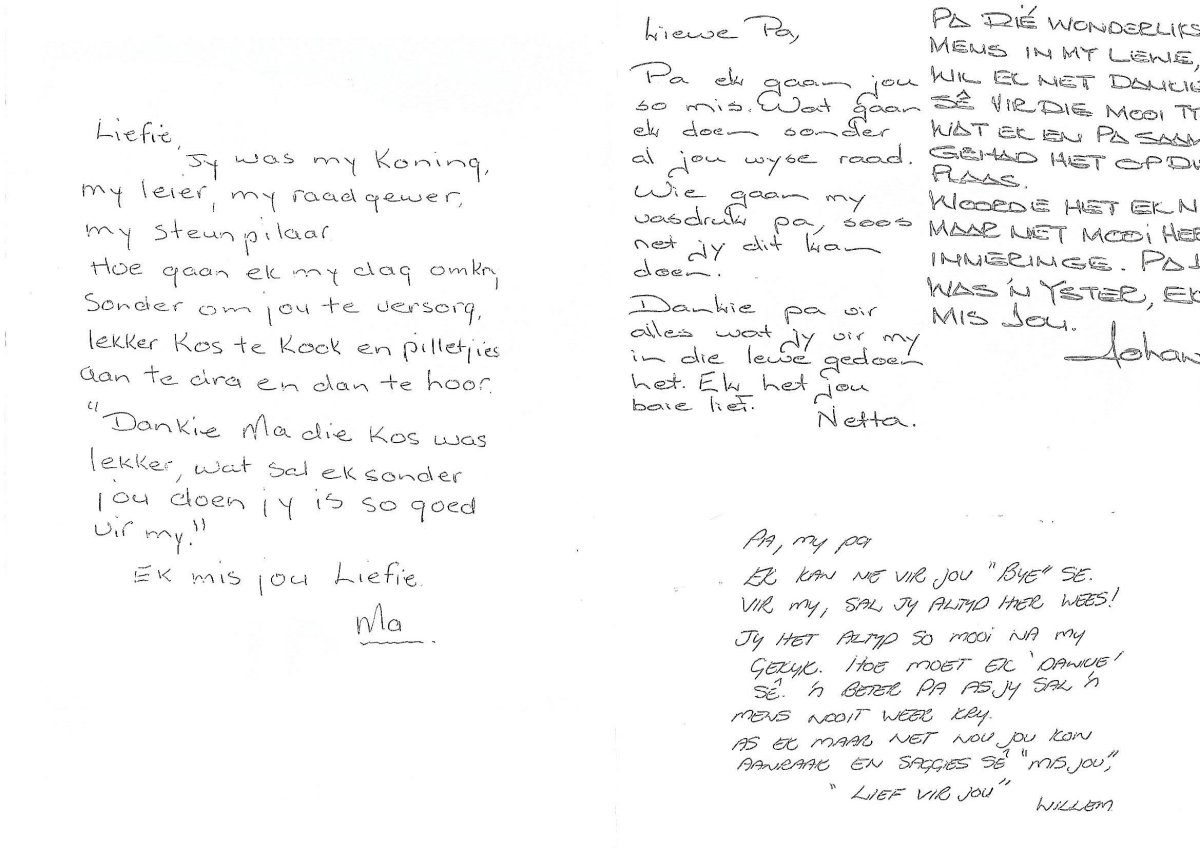 Liefie,
Jy was my Koning,
my leier, my raadgewer,
my steunpilaar
Hoe gaan ek my dag omkry
Sonder om jou te versorg,
lekker Kos te Kook en pilletjies
aan te dra en dan te hoor.
"Dankie Ma die Kos was
lekker, wat sal ek sonder
jou doen jy is so goed
vir my."
Ek mis jou Liefie.
Ma
Liewe Pa,
Pa ek gaan jou
so mis. Wat gaan
ek doen sonder
al jou wyse raad.
Wie gaan my
vasdruk pa, soos
net jy dit kan
doen.
Dankie pa vir
alles wat jy vir my
in die lewe gedoen
het. Ek het jou
baie lief.
Netta.
PA DIÉ WONDERLIKS
MENS IN MY LEWE,
WIL EK NET DANKIE
SÊ VIR DIE MOOI TY
WAT EK EN PA SAAM
GEHAD HET OP DI
PLAAS.
WOORDE HET EK N
MAAR NET MOOI HER
INNERINGE. PA J
WAS 'N YSTER, EK
MIS JOU.
Johan
PA, my pa
EK KAN NE VIR JOU "BYE" SE.
VIR MY, SAL JY ALTYD HIER WEES!
JY HET ALTYD SO MOOI NA MY
GEKYK. HOE MOET EK 'DANKIE'
SÊ. 'N BETER PA AS JY SAL 'N
MENS NOOIT WEER KRY.
AS EK MAAR NET NOU JOU KON
AANRAAK EN SAGGIES SÊ "MIS JOU",
"LIEF VIR JOU"
WILLEM